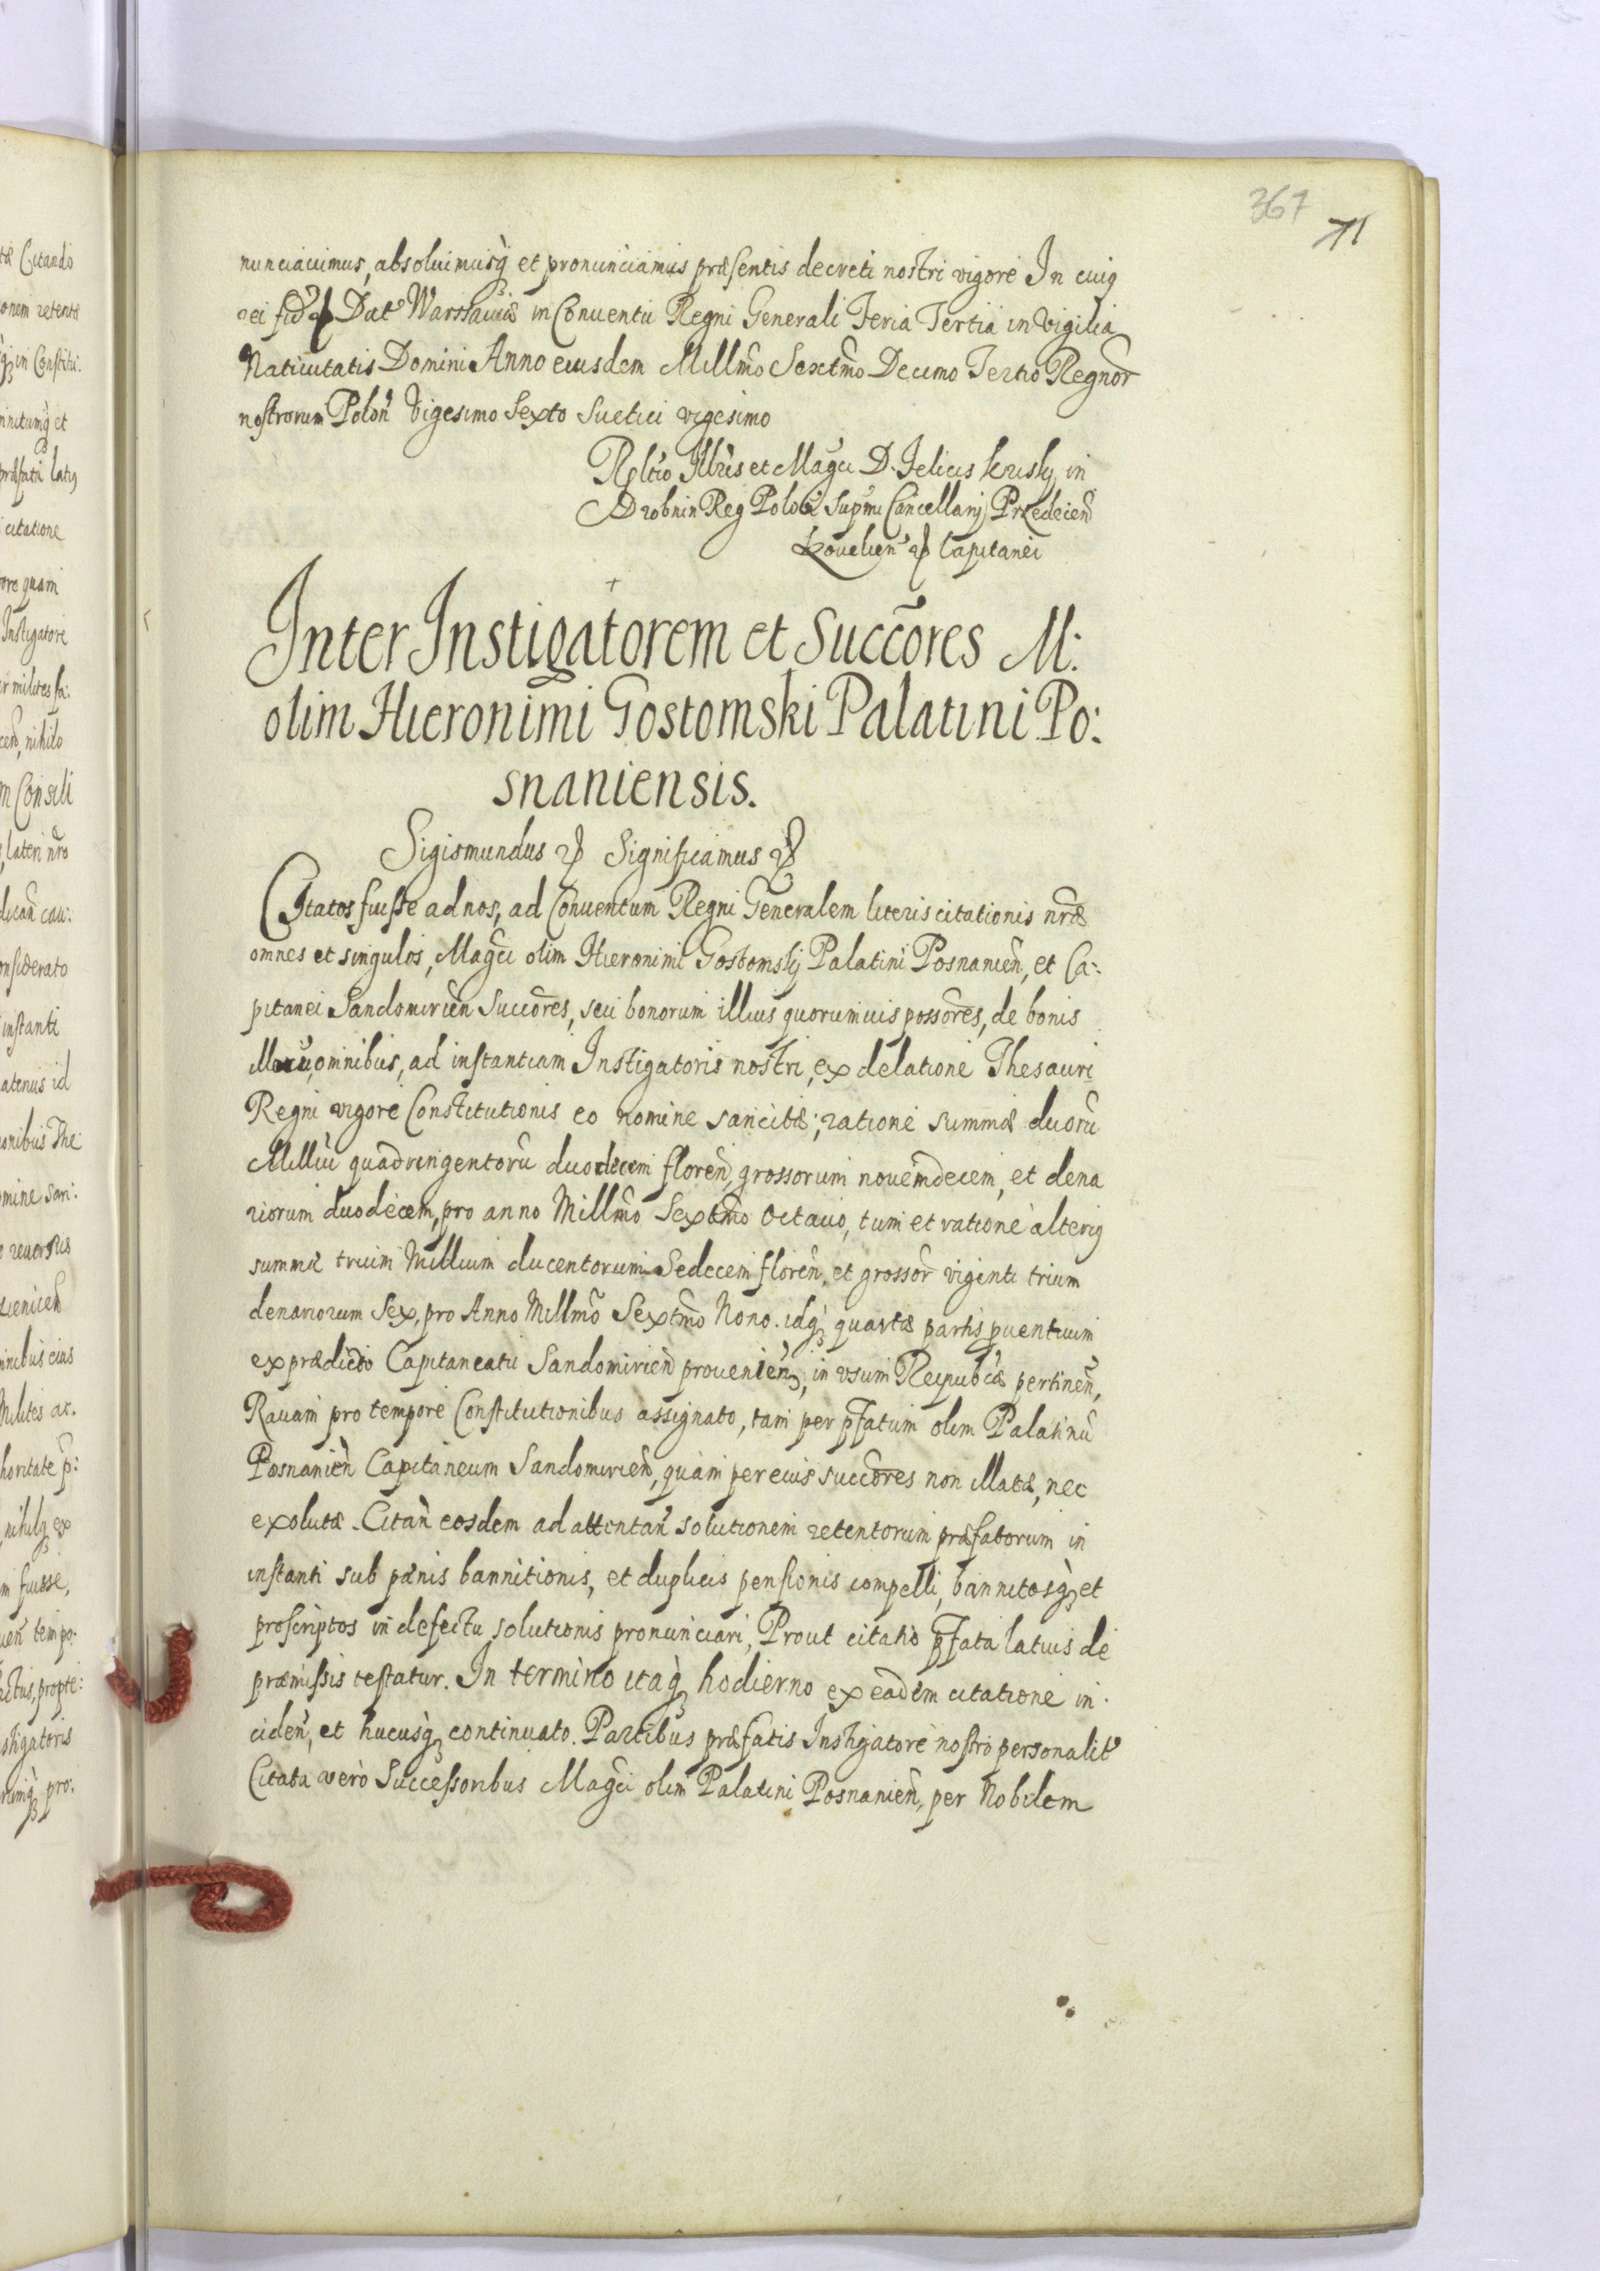 367
71
nunciauimus, absoluimusq̀ et pronunciamus præsentis decreti nostri vigore In cuiq
rei fid Dat Warssauiæ in Conuentu Regni Generali Feria Tertia in Vigilia
Natiuitatis Domini Anno eiusdem Millmo Sextmo Decimo Tertio Regnor
nostrorum Polon Vigesimo Sexto Suetici vigesimo
Rltio Illris et Magci D. Felicis Krisky in
Drobnin Reg Polo Supmi Cancellarij Przedecen
Kouelien Capitanei
Inter Instigatorem et Succores M:
olim Hieronimi Gostomski Palatini Po:
snaniensis.
Sigismundus Significamus
Citatos fuisse ad nos, ad Conuentum Regni Generalem literis citationis nræ
omnes et singulos, Magci olim Hieronimi Gostomsky Palatini Posnanien, et Ca:
pitanei Sandomirien Succores, seu bonorum illius quorumuis possores, de bonis
omnibus, ad instantiam Instigatoris nostri, ex delatione Thesauri
Regni vigore Constitutionis eo nomine sancitæ; ratione summæ duorū
Milliū quadringentorū duodecim floren, grossorum nouemdecem, et dena
riorum duodecem, pro anno Millmo Sextmo Octauo, tum et ratione alteriq
summæ trium Millium ducentorum Sedecem floren, et grossor viginti trium
denariorum Sex, pro Anno Millmo Sextmo Nono. idq̀ quartæ partis puentuum
ex prædicto Capitaneatu Sandomirien prouenien, in vsum Reipubcæ pertinen,
Rauam pro tempore Constitutionibus assignato, tam per pfatum olim Palatinū
Posnanien Capitaneum Sandomirien, quam per eius succores non illatæ, nec
exolutæ. Citan eosdem ad attentan solutionem retentorum præfatorum in
instanti sub pænis bannitionis, et duplicis pensionis compelli, bannitosq̀ et
proscriptos in defectu solutionis pronunciari, Prout citatio pfata latius de
præmissis testatur. In termino itaq̀ hodierno ex eadem citatione in
ciden, et hucusq̀ continuato. Partibus præfatis Instigatore nostro personalit
Citata verò Successoribus Magci olim Palatini Posnanien, per Nobilem